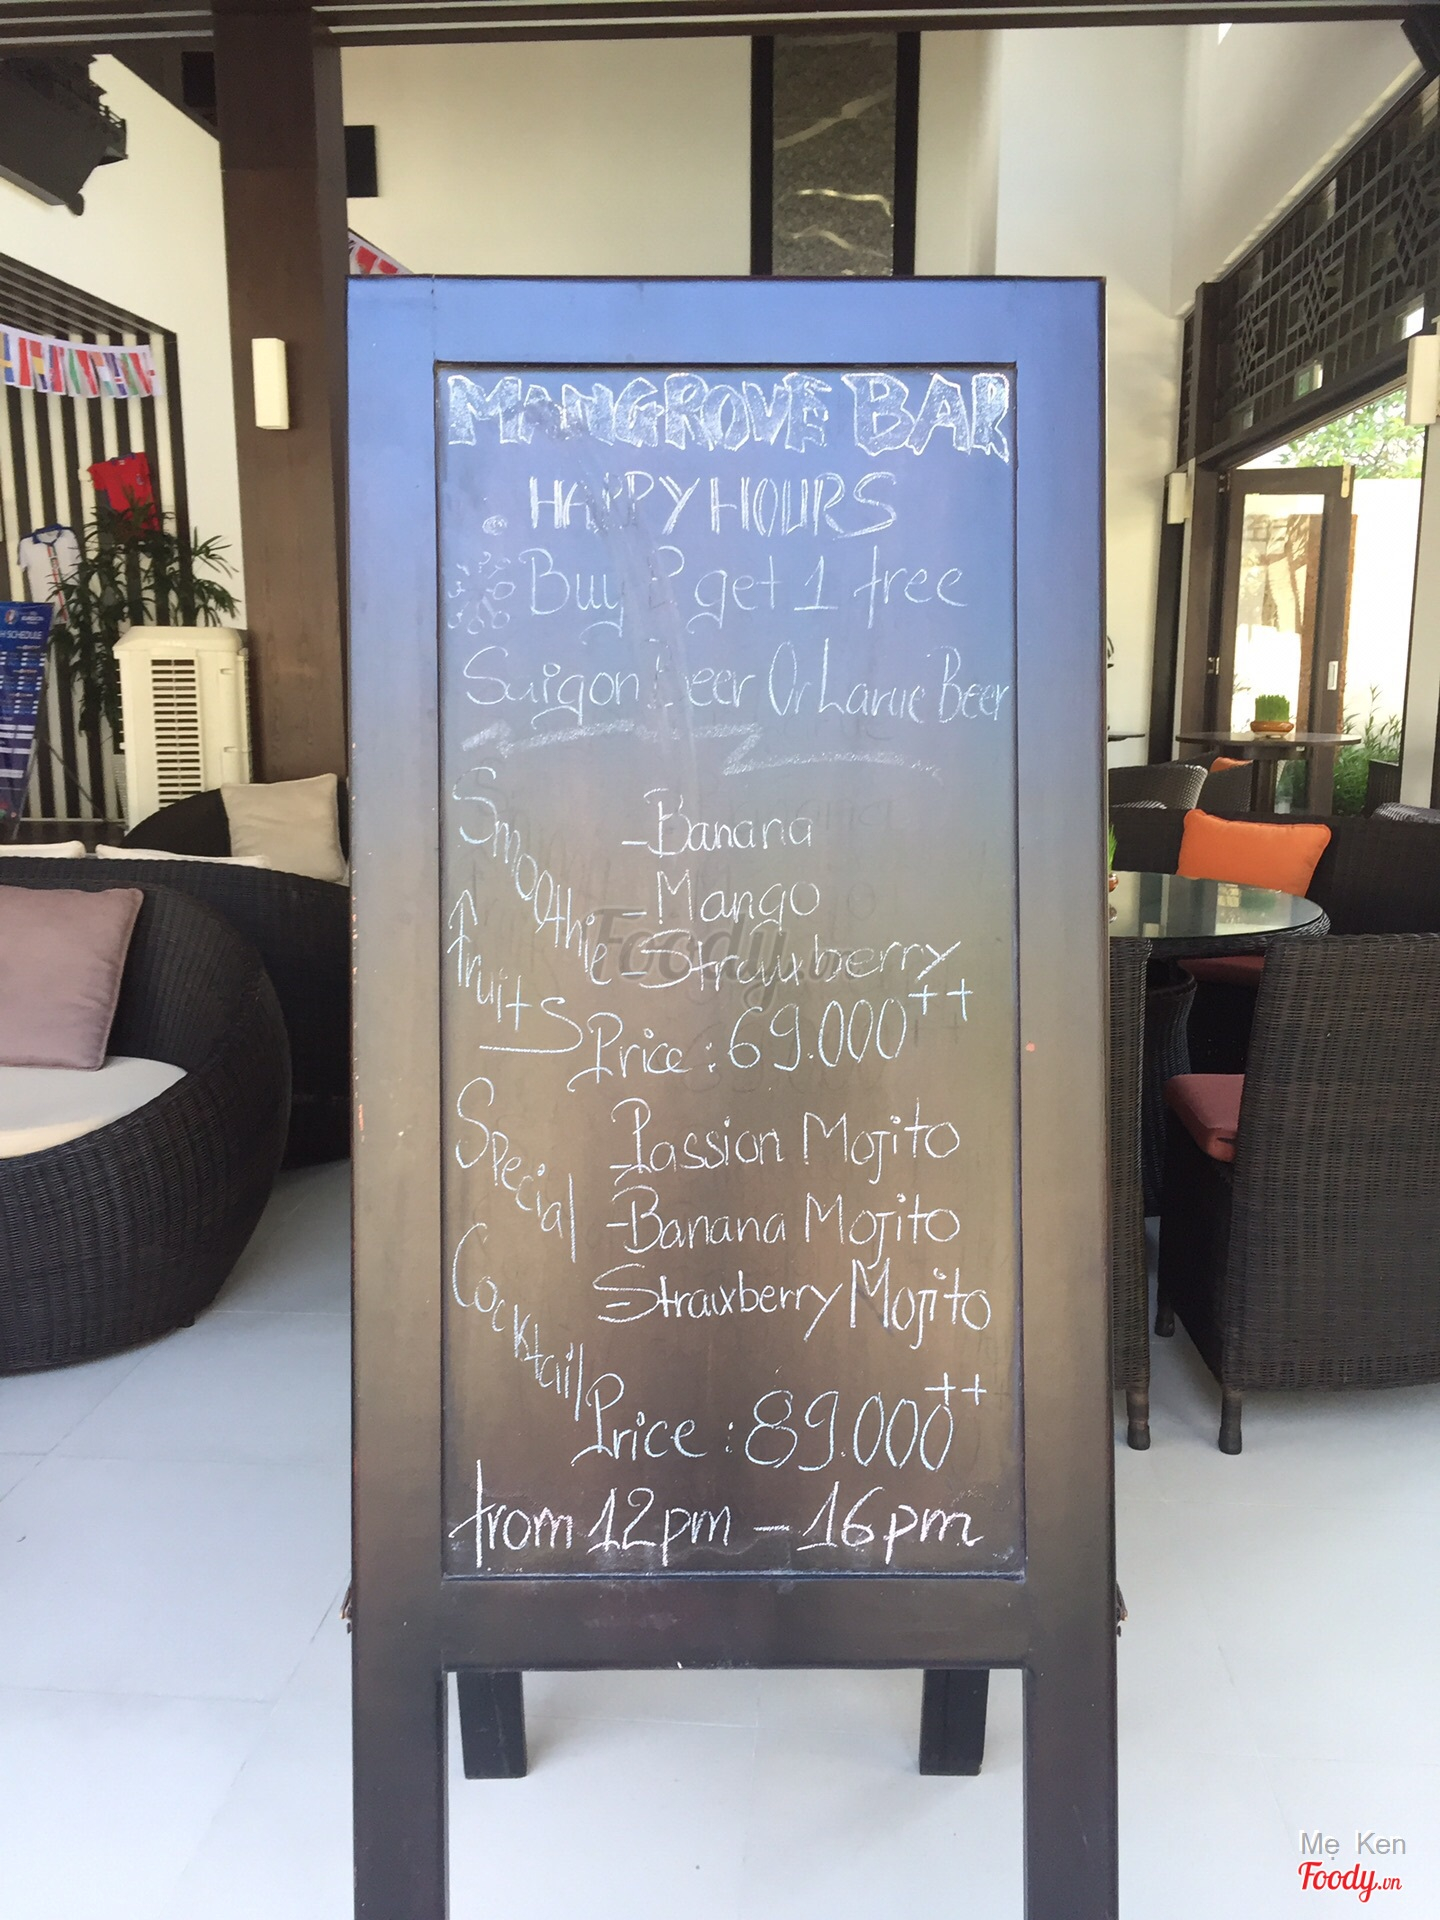 MANGROVE BAR
HAPPY HOURS
Buy 2 get 1 free
Saigon Beer Or Larue Beer
Smoothie
fruits
- Banana
- Mango
- Strawberry
Price : 69.000++
Special
Cocktail
- Passion Mojito
- Banana Mojito
- Strawberry Mojito
Price : 89.000++
from 12pm - 16pm
SCHEDULE
Foody.vn
Mẹ Ken
Foody.vn